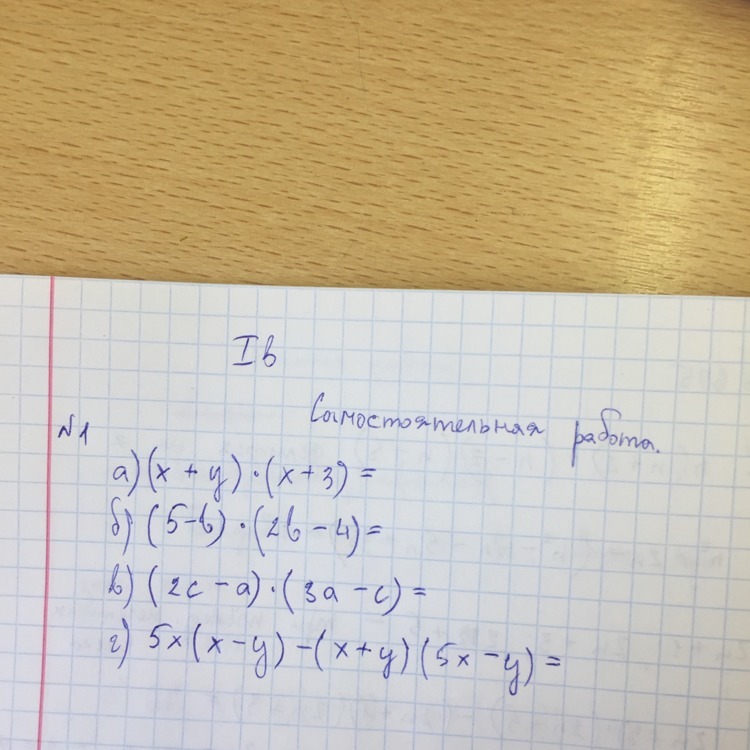 I в
Самостоятельная работа.
№1
а) (x + y) · (x + 3) =
б) (5 - b) · (2b - 4) =
в) (2c - a) · (3a - c) =
г) 5x (x - y) - (x + y) (5x - y) =